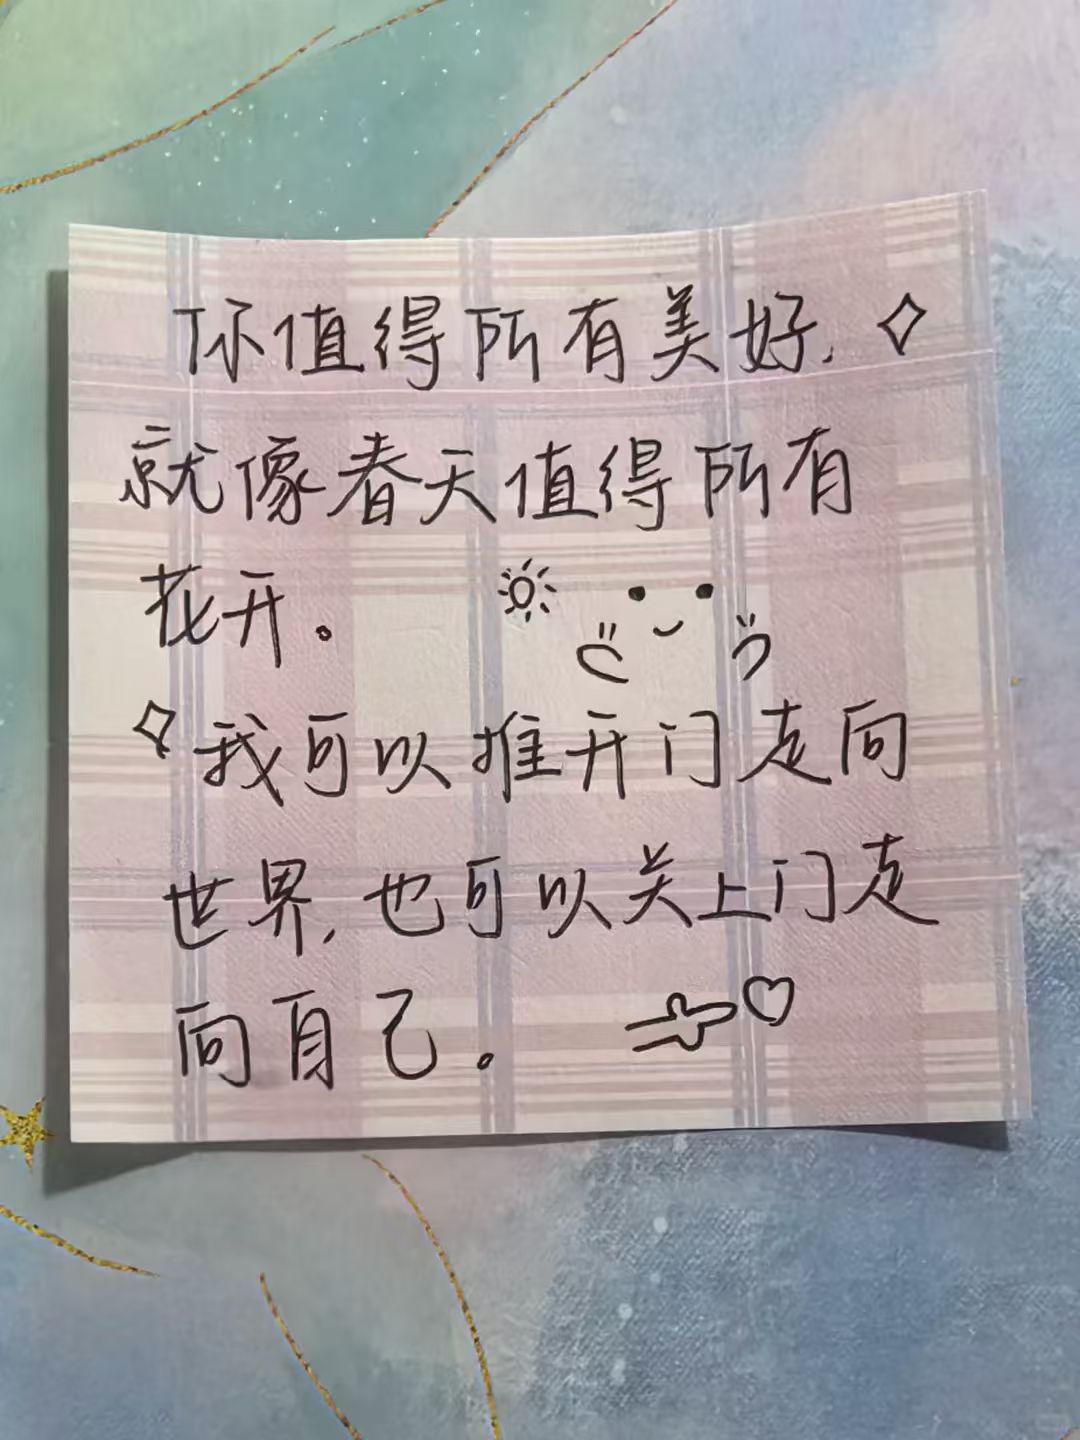 你值得所有美好,
就像春天值得所有
花开。
我可以推开门走向
世界,也可以关上门走
向自己。